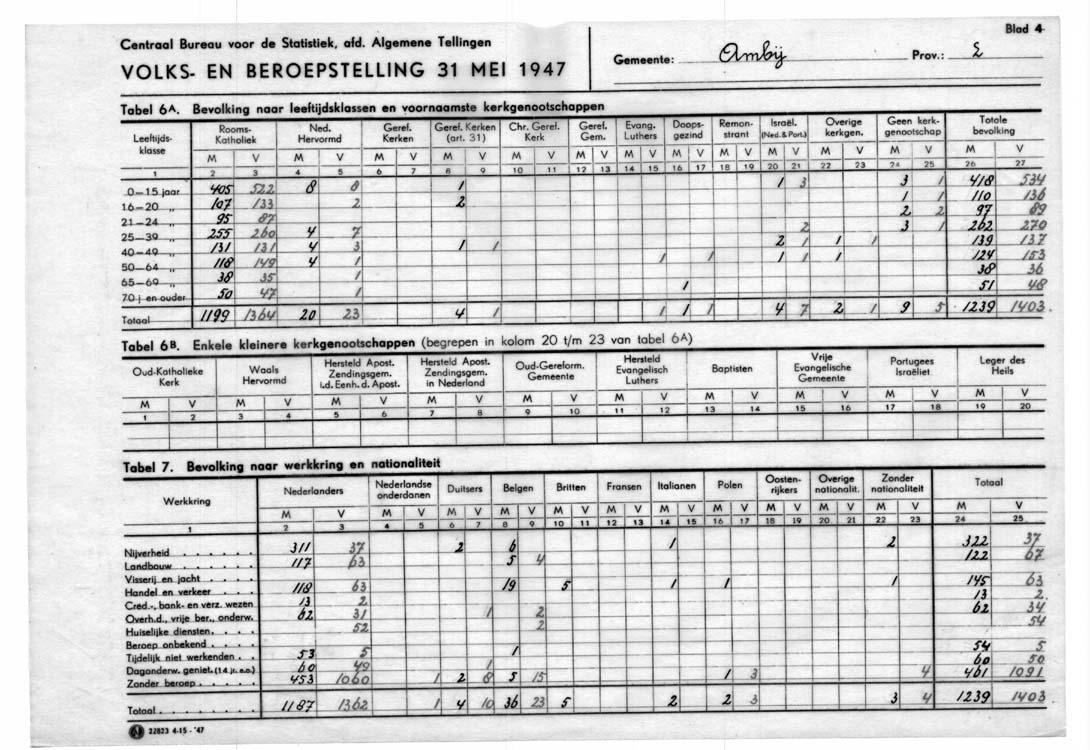 Blad 4-
Centraal Bureau voor de Statistiek, afd. Algemene Tellingen
VOLKS- EN BEROEPSTELLING 31 MEI 1947
Gemeente: Ambij Prov.: L
Tabel 6A. Bevolking naar leeftijdsklassen en voornaamste kerkgenootschappen
Leeftijds-klasse Rooms-Katholiek Ned. Hervormd Geref. Kerken Geref. Kerken (art. 31) Chr. Geref. Kerk Geref. Gem. Evang. Luthers Doops-gezind Remon-strant Israël. (Ned. & Port.) Overige kerkgen. Geen kerk-genootschap Totale bevolking
M V M V M V M V M V M V M V M V M V M V M V M V M V
1 2 3 4 5 6 7 8 9 10 11 12 13 14 15 16 17 18 19 20 21 22 23 24 25 26 27
0-15 jaar 405 522 8 8 1 1 3 3 1 418 534
16-20 „ 107 133 2 2 1 1 110 136
21-24 „ 95 87 2 2 97 89
25-39 „ 255 260 4 7 2 3 1 262 270
40-49 „ 131 131 4 3 1 1 2 1 1 1 139 137
50-64 „ 118 149 4 1 1 1 1 1 1 124 153
65-69 „ 38 35 1 38 36
70 j en ouder 50 47 1 1 51 48
Totaal 1199 1364 20 23 4 1 1 1 1 4 7 2 1 9 5 1239 1403.
Tabel 6B. Enkele kleinere kerkgenootschappen (begrepen in kolom 20 t/m 23 van tabel 6A)
Oud-Katholieke Kerk Waals Hervormd Hersteld Apost. Zendingsgem. i.d. Eenh. d. Apost. Hersteld Apost. Zendingsgem. in Nederland Oud-Gereform. Gemeente Hersteld Evangelisch Luthers Baptisten Vrije Evangelische Gemeente Portugees Israëliet. Leger des Heils
M V M V M V M V M V M V M V M V M V M V
1 2 3 4 5 6 7 8 9 10 11 12 13 14 15 16 17 18 19 20
Tabel 7. Bevolking naar werkkring en nationaliteit
Werkkring Nederlanders Nederlandse onderdanen Duitsers Belgen Britten Fransen Italianen Polen Oosten-rijkers Overige nationalit. Zonder nationaliteit Totaal
M V M V M V M V M V M V M V M V M V M V M V M V
1 2 3 4 5 6 7 8 9 10 11 12 13 14 15 16 17 18 19 20 21 22 23 24 25
Nijverheid . . . . . . 311 37 2 6 1 2 322 37
Landbouw . . . . . . 117 63 5 4 122 67
Visserij en jacht . . . .
Handel en verkeer . . . 118 63 19 5 1 1 1 145 63
Cred.-, bank- en verz. wezen 13 2 13 2.
Overh.d., vrije ber., onderw. 62 31 1 2 62 34
Huiselijke diensten. . . . 52 2 54
Beroep onbekend . . . .
Tijdelijk niet werkenden . . 53 5 1 54 5
Dagonderw. geniet. (14 jr. e.o.) 60 49 1 60 50
Zonder beroep . . . . . 453 1060 1 2 8 5 15 1 3 4 461 1091
Totaal . . . . . . . 1187 1362 1 4 10 36 23 5 2 2 3 3 4 1239 1403
22823 4-15 - '47